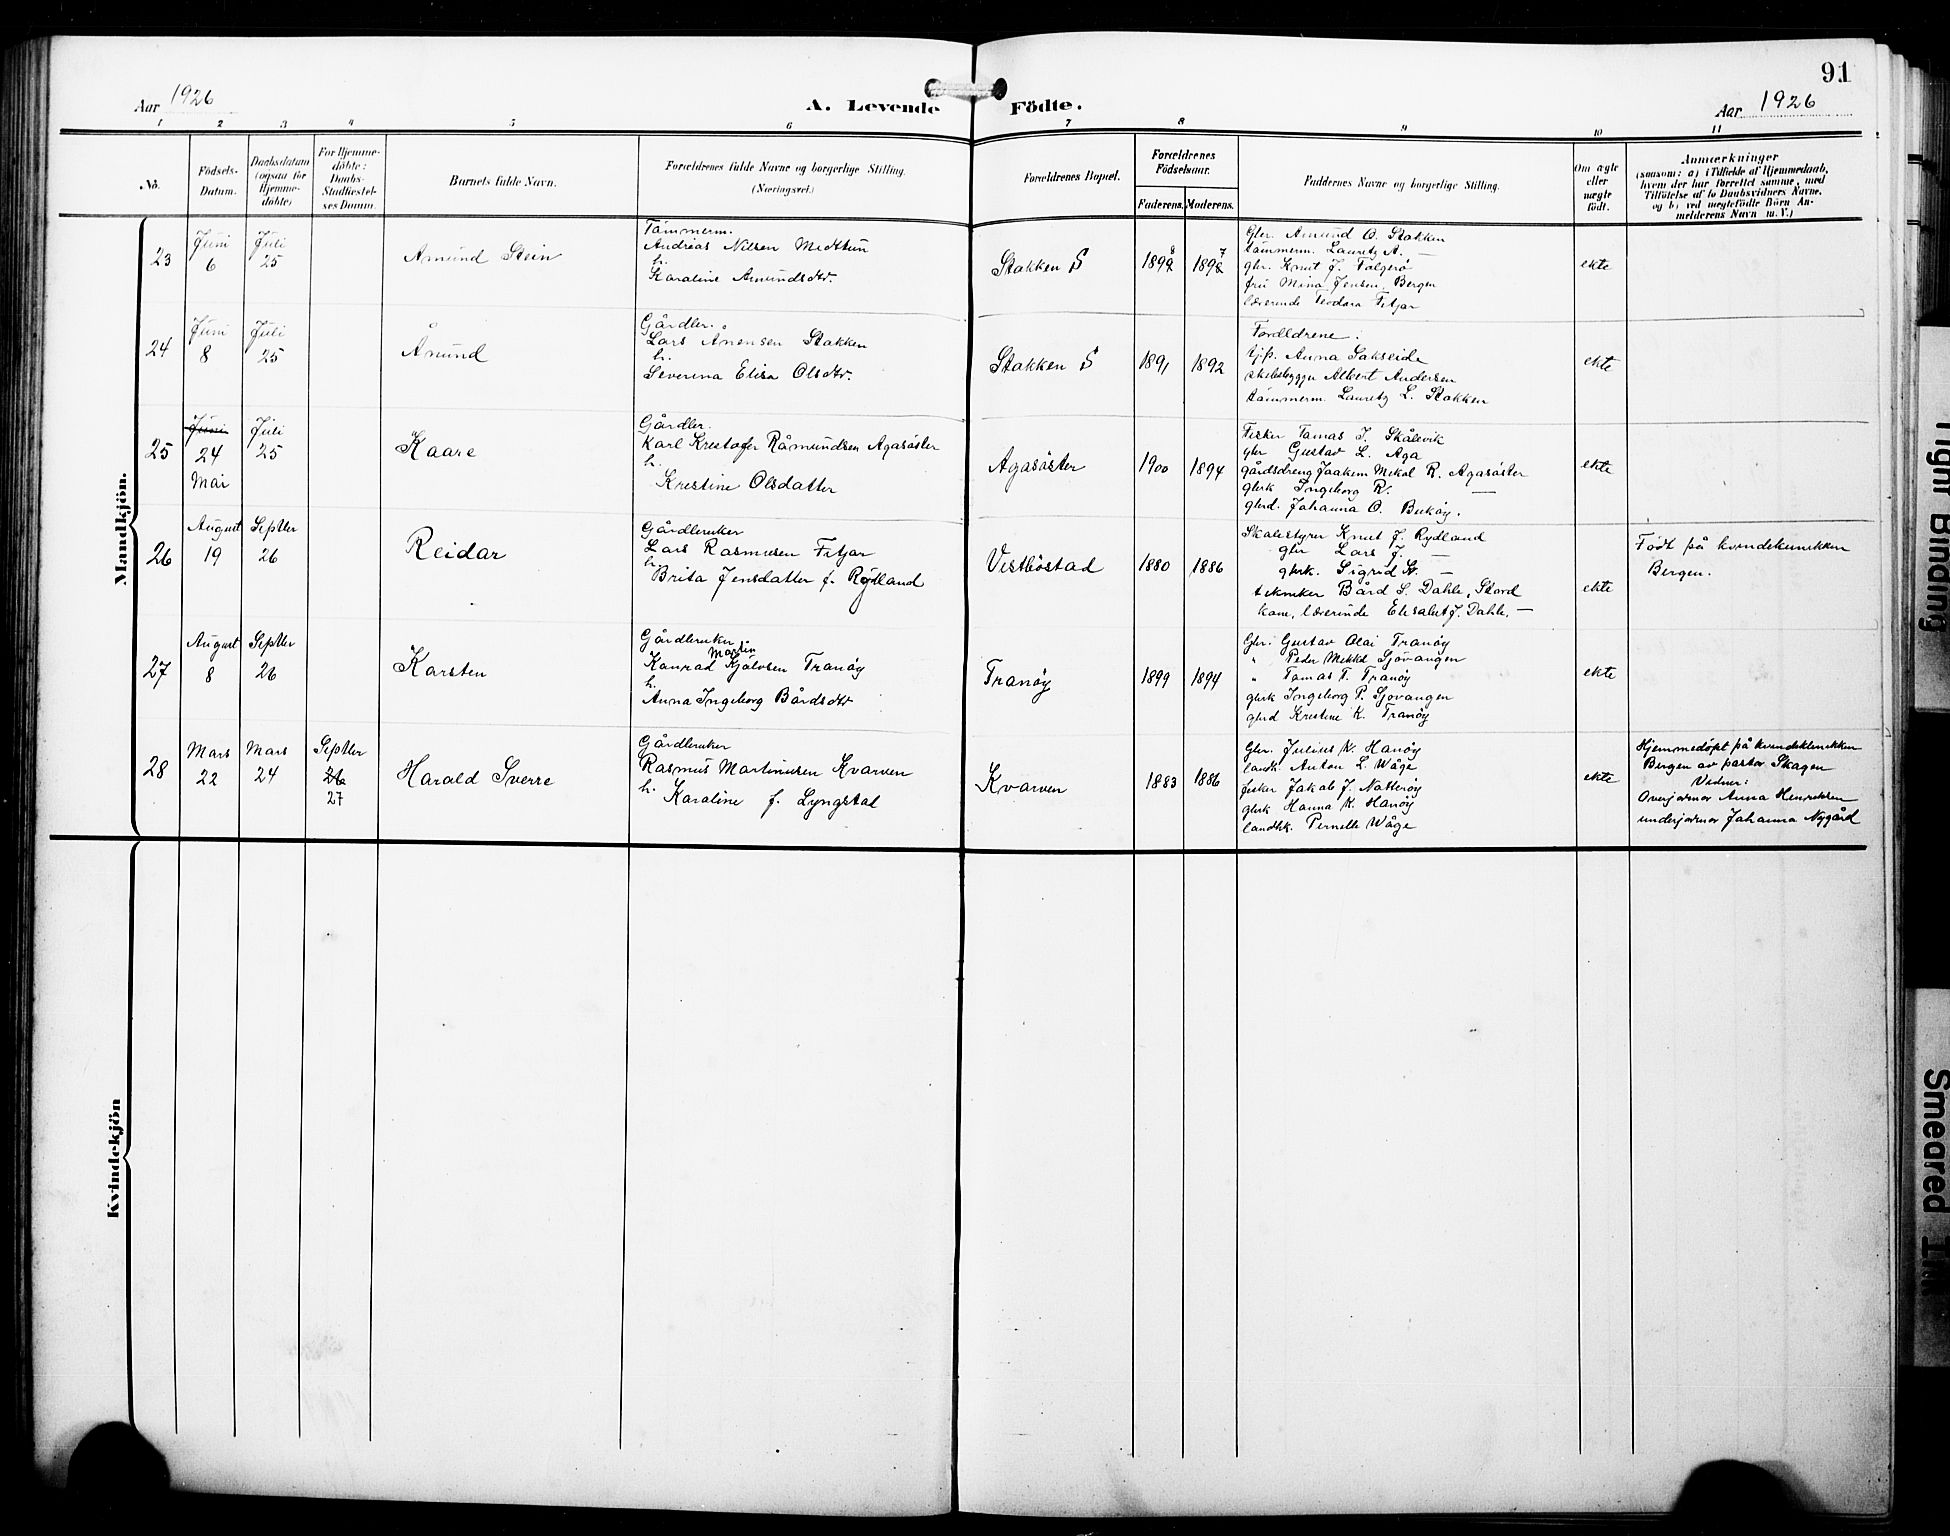 91
Aar 1926
A. Levende Födte.
Aar 1926
1 2 3 4 5 6 7 8 9 10 11
No.
Födsels-Datum.
Daabsdatum (ogsaa for Hjemme-döbte)
For Hjemme-döbte: Daabs-Stadfæstel-ses Datum.
Barnets fulde Navn.
Forældrenes fulde Navne og borgerlige Stilling. (Næringsvei.)
Forældrenes Bopæl.
Forældrenes Födselsaar.
Faderens. Moderens.
Faddernes Navne og borgerlige Stilling.
Om ægte eller uægte födt.
Anmærkninger
(saasom: a) i Tilfælde af Hjemmedaab, hvem der har forrettet samme, med Tilföielse af to Daabsvidners Navne, og b) ved uægtefödte Börn Anmelderens Navn m. V.)
Mandkjön.
23
Juni 6
Juli 25
Amund Stein
Tømmerm.
Andreas Nilsen Medhun
h.
Karaline Amundsdtr.
Stokken S
1898 1897
Gbr. Amund O. Stokken
tømmerm. Lauretz A. —
gbr. Knut J. Folgerø
fru Mina Jensen, Bergen
lærerinde Teodora Fitjar
ekte
24
Juni 8
Juli 25
Ånund
Gårdbr.
Lars Ånensen Stokken
h.
Severina Elisa Olsdtr.
Stokken S
1891 1892
Foreldrene.
tjp. Anna Sakseide
skibsbygger Albert Andersen
tømmerm. Lauretz L. Stokken
ekte
25
Juni 24 Mai
Juli 25
Kaare
Gårdbr.
Karl Kristofer Råmundsen Agasöster
h.
Kristine Olsdatter
Agasöster
1900 1894
Fisker Tomas J. Skålevik
gbr Gustav L. Aga
gårdsdreng Joakim Mikal R. Agasöster
gbrk Ingeborg R. —
gbrd. Johanna O. Bukøy.
ekte
26
August 19
Septber 26
Reidar
Gårdbruker
Lars Rasmusen Fitjar
h.
Brita Jensdatter f. Rydland
Vestböstad
1880 1886
Skolestyrer Knut J. Rydland
gbr Lars J. —
gbrk. Sigrid St. —
tekniker Bård S. Dahle, Stord
kone, lærerinde Elisabet J. Dahle. —
ekte
Født på kvindeklinikken
Bergen.
27
August 8
Septber 26
Karsten
Gårdbruker
Konrad Martin Kjølvsen Tranøy
h.
Anna Ingeborg Bårdsdtr
Tranøy
1899 1894
Gbr. Gustav Olai Tranøy
" Peder Mikkel Sjövangen
" Tomas T. Tranøy
gbrk Ingeborg P. Sjovangen
gbrd Kristine K. Tranøy
ekte
28
Mars 22
Mars 24
Septber 26 27
Harald Sverre
Gårdbruker
Rasmus Martinusen Kvarven
h.
Karoline f. Lyngstad
Kvarven
1883 1886
Gbr. Julius N. Hanøy
landh. Anton L. Wåge
fisker Jakob J. Nätterøy
gbrk Hanna K. Hanøy
landhk. Pernelle Wåge
ekte
Hjemmedøpt på kvindeklinikken
Bergen av pastor Skagen
Vidner:
Overjormor Anna Henriksen
underjormor Johanna Nygård
Kvindekjön
Tight Binding
Smeared Ink